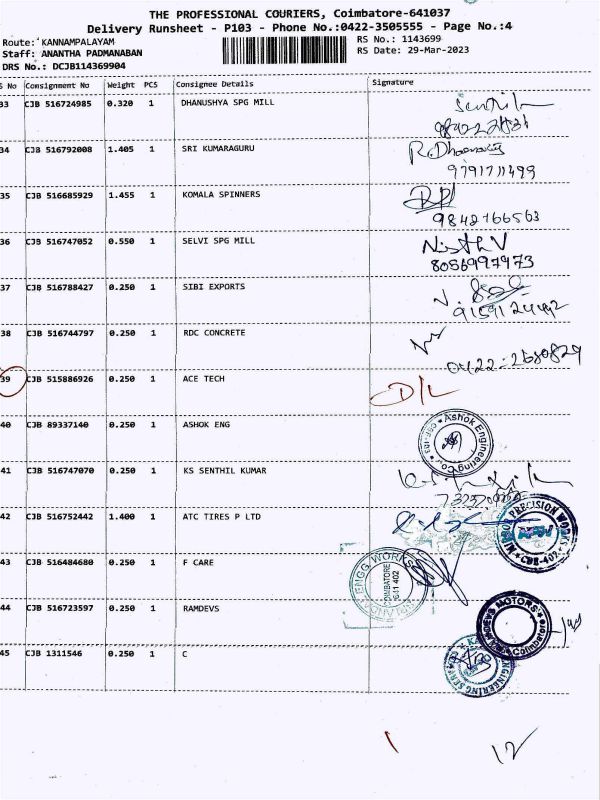 THE PROFESSIONAL COURIERS, Coimbatore-641037
Delivery Runsheet - P103 - Phone No.:0422-3505555 - Page No.:4
Route: KANNAMPALAYAM
Staff: ANANTHA PADMANABAN
DRS No.: DCJB114369904
RS No.: 1143699
RS Date: 29-Mar-2023
S No Consignment No Weight PCS Consignee Details Signature
33 CJB 516724985 0.320 1 DHANUSHYA SPG MILL
34 CJB 516792008 1.405 1 SRI KUMARAGURU
9791711499
35 CJB 516685929 1.455 1 KOMALA SPINNERS
9842166563
36 CJB 516747052 0.550 1 SELVI SPG MILL
8056997973
37 CJB 516788427 0.250 1 SIBI EXPORTS
38 CJB 516744797 0.250 1 RDC CONCRETE
0422-2680829
39 CJB 515886926 0.250 1 ACE TECH D/L
40 CJB 89337140 0.250 1 ASHOK ENG
Ashok Engineering Co.,
41 CJB 516747070 0.250 1 KS SENTHIL KUMAR
42 CJB 516752442 1.400 1 ATC TIRES P LTD
PRECISION WORKS
CBE-402
43 CJB 516484680 0.250 1 F CARE
ENGG WORKS
COIMBATORE
641 402
44 CJB 516723597 0.250 1 RAMDEVS
MOTORS
Coimbatore
45 CJB 1311546 0.250 1 C
ENGINEERING
1
12